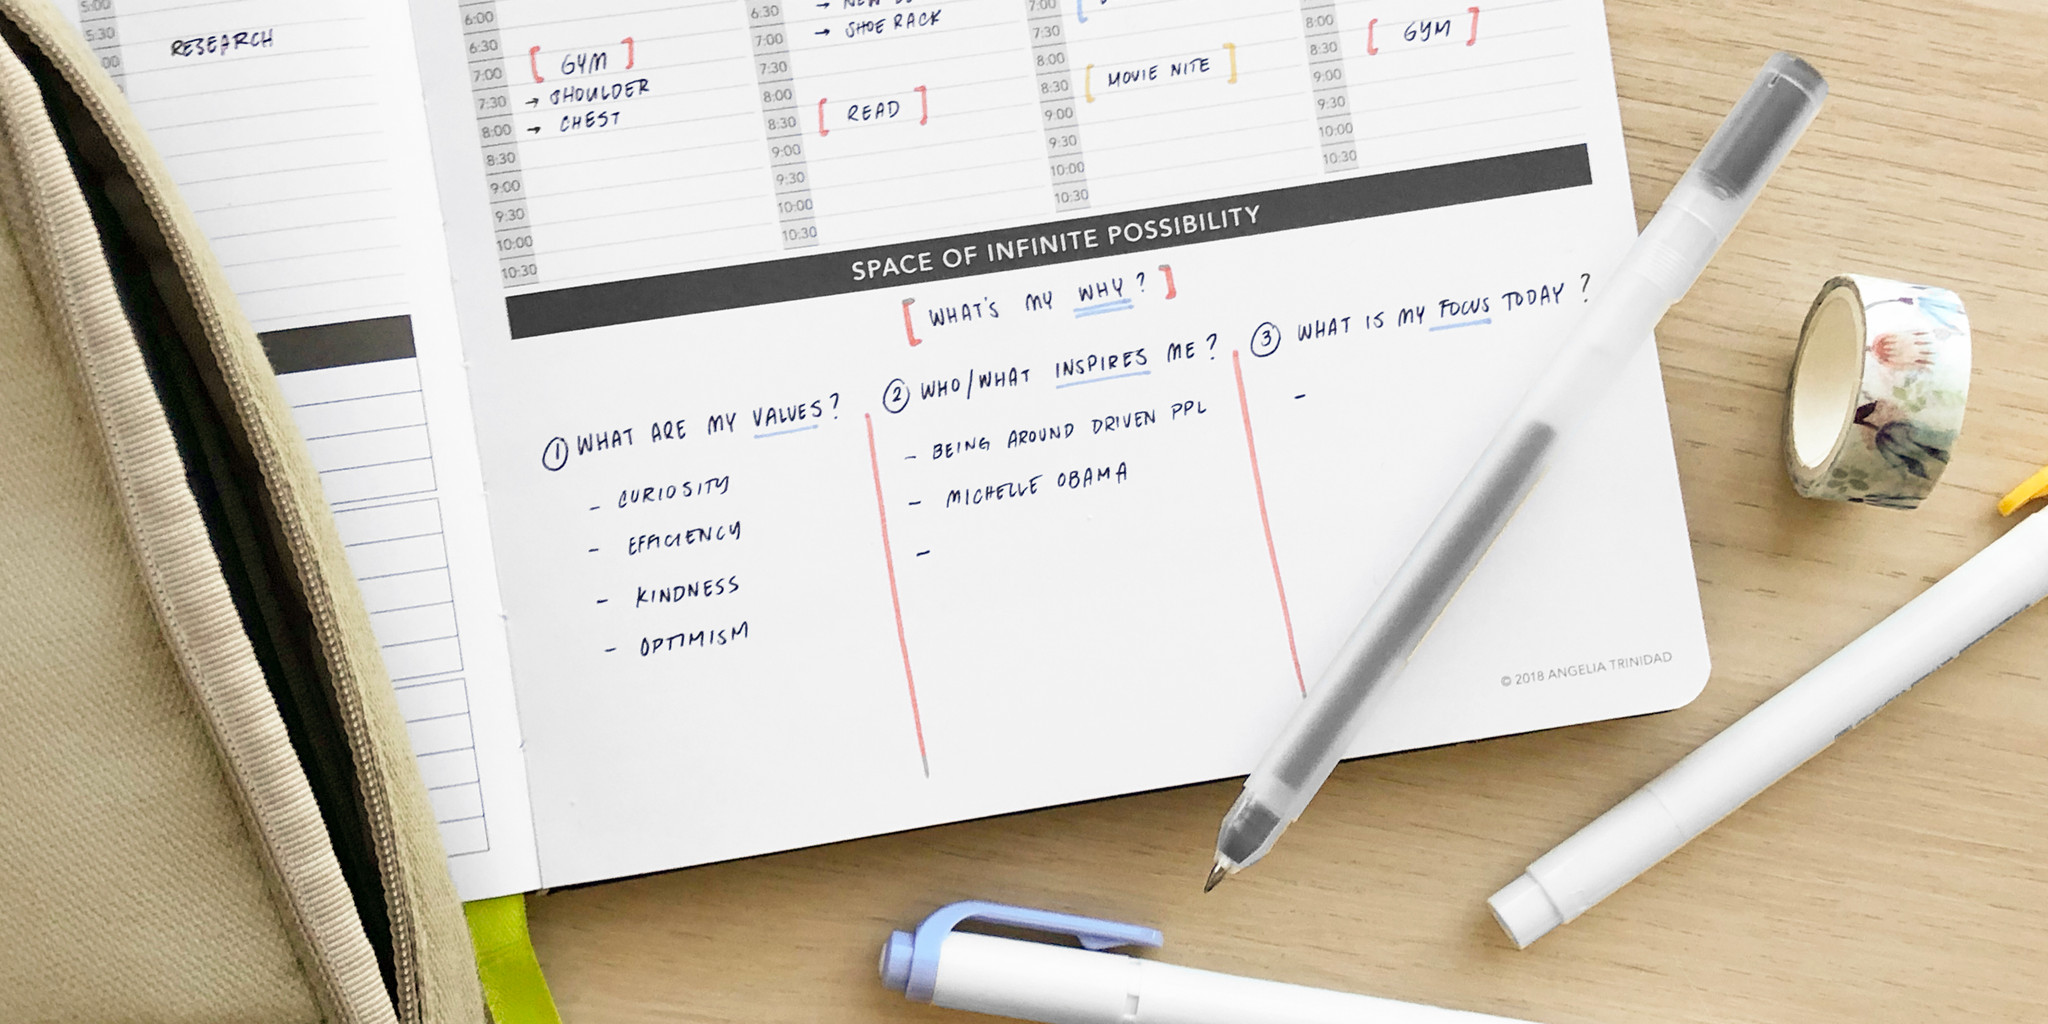 5:00
5:30
RESEARCH
6:00
6:30
[ GYM ]
7:00
7:30
→ SHOULDER
8:00
→ CHEST
8:30
9:00
9:30
10:00
10:30
6:30
→ SHOE RACK
7:00
7:30
8:00
8:30
[ READ ]
9:00
9:30
10:00
10:30
7:00
7:30
8:00
[ MOVIE NITE ]
8:30
9:00
9:30
10:00
10:30
8:00
[ GYM ]
8:30
9:00
9:30
10:00
10:30
SPACE OF INFINITE POSSIBILITY
[ WHAT'S MY WHY ? ]
① WHAT ARE MY VALUES ?
- CURIOSITY
- EFFICIENCY
- KINDNESS
- OPTIMISM
② WHO/WHAT INSPIRES ME ?
- BEING AROUND DRIVEN PPL
- MICHELLE OBAMA
-
③ WHAT IS MY FOCUS TODAY ?
-
© 2018 ANGELIA TRINIDAD